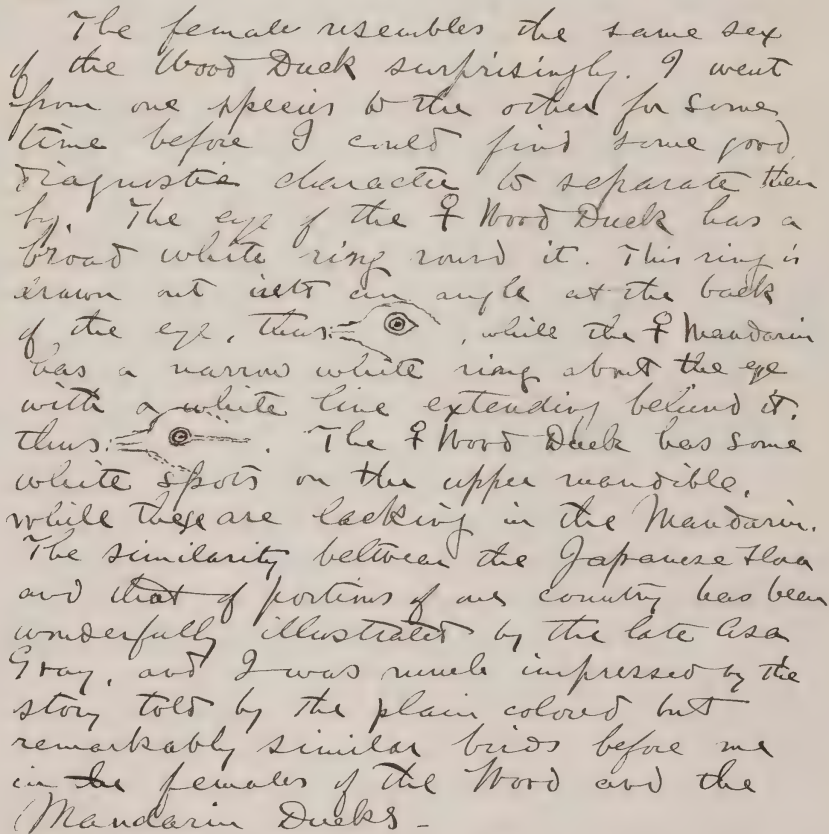 The female resembles the same sex
of the Wood Duck surprisingly. I went
from one species to the other for some
time before I could find some good
diagnostic character to separate them
by. The eye of the ♀ Wood Duck has a
broad white ring round it. This ring is
drawn out into an angle at the back
of the eye, thus: , while the ♀ Mandarin
has a narrow white ring about the eye
with a white line extending behind it,
thus: . The ♀ Wood Duck has some
white spots on the upper mandible,
while these are lacking in the Mandarin.
The similarity between the Japanese flora
and that of portions of our country has been
wonderfully illustrated by the late Asa
Gray, and I was much impressed by the
story told by the plain colored but
remarkably similar birds before me
in the females of the Wood and the
Mandarin Ducks -